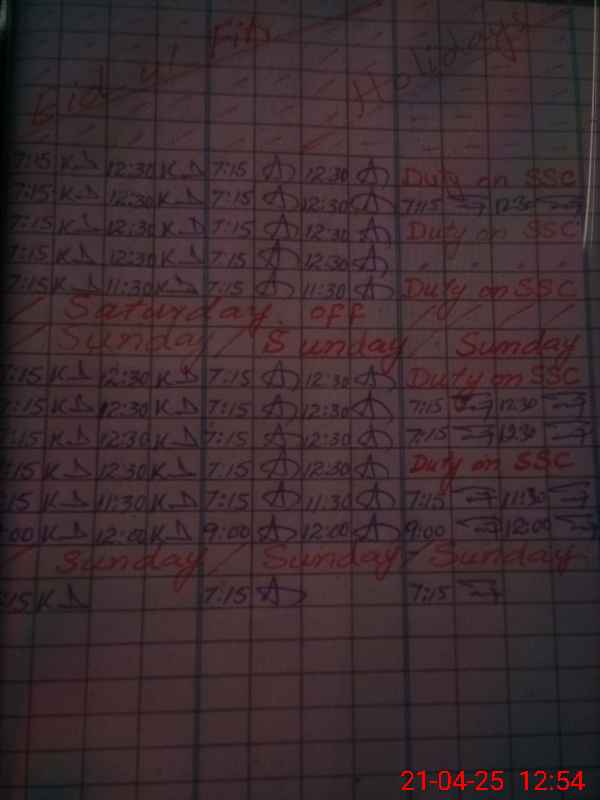 Eid ul Fitr Holidays
7:15 KD 12:30 KD 7:15 A 12:30 A Duty on SSC
7:15 KD 12:30 KD 7:15 A 12:30 A 7:15 12:30
7:15 KD 12:30 KD 7:15 A 12:30 A Duty on SSC
7:15 KD 12:30 KD 7:15 A 12:30 A " " " "
7:15 KD 11:30 KD 7:15 A 11:30 A Duty on SSC
Saturday off
Sunday / Sunday / Sunday
7:15 KD 12:30 KD 7:15 A 12:30 A Duty on SSC
7:15 KD 12:30 KD 7:15 A 12:30 A 7:15 12:30
7:15 KD 12:30 KD 7:15 A 12:30 A 7:15 12:30
7:15 KD 12:30 KD 7:15 A 12:30 A Duty on SSC
:15 KD 11:30 KD 7:15 A 11:30 A 7:15 11:30
:00 KD 12:00 KD 9:00 A 12:00 A 9:00 12:00
/ Sunday / Sunday / Sunday
:15 KD 7:15 A 7:15
21-04-25 12:54